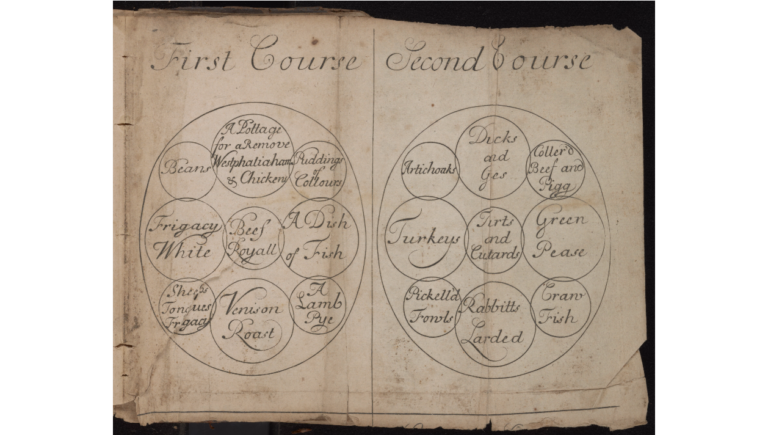 First Course
A Pottage
for a Remove
Westphalia ham
& Chickens
Beans
Puddings
of
Collours
Frigacy
White
Beef
Royall
A Dish
of Fish
Sheeps
Tongues
Frgag
Venison
Roast
A
Lamb
Pye
Second Course
Ducks
and
Ges
Artichoaks
Coller'd
Beef and
Pigg
Turkeys
Tirts
and
Cutards
Green
Pease
Pickell'd
Fowls
Rabbitts
Larded
Craw
Fish